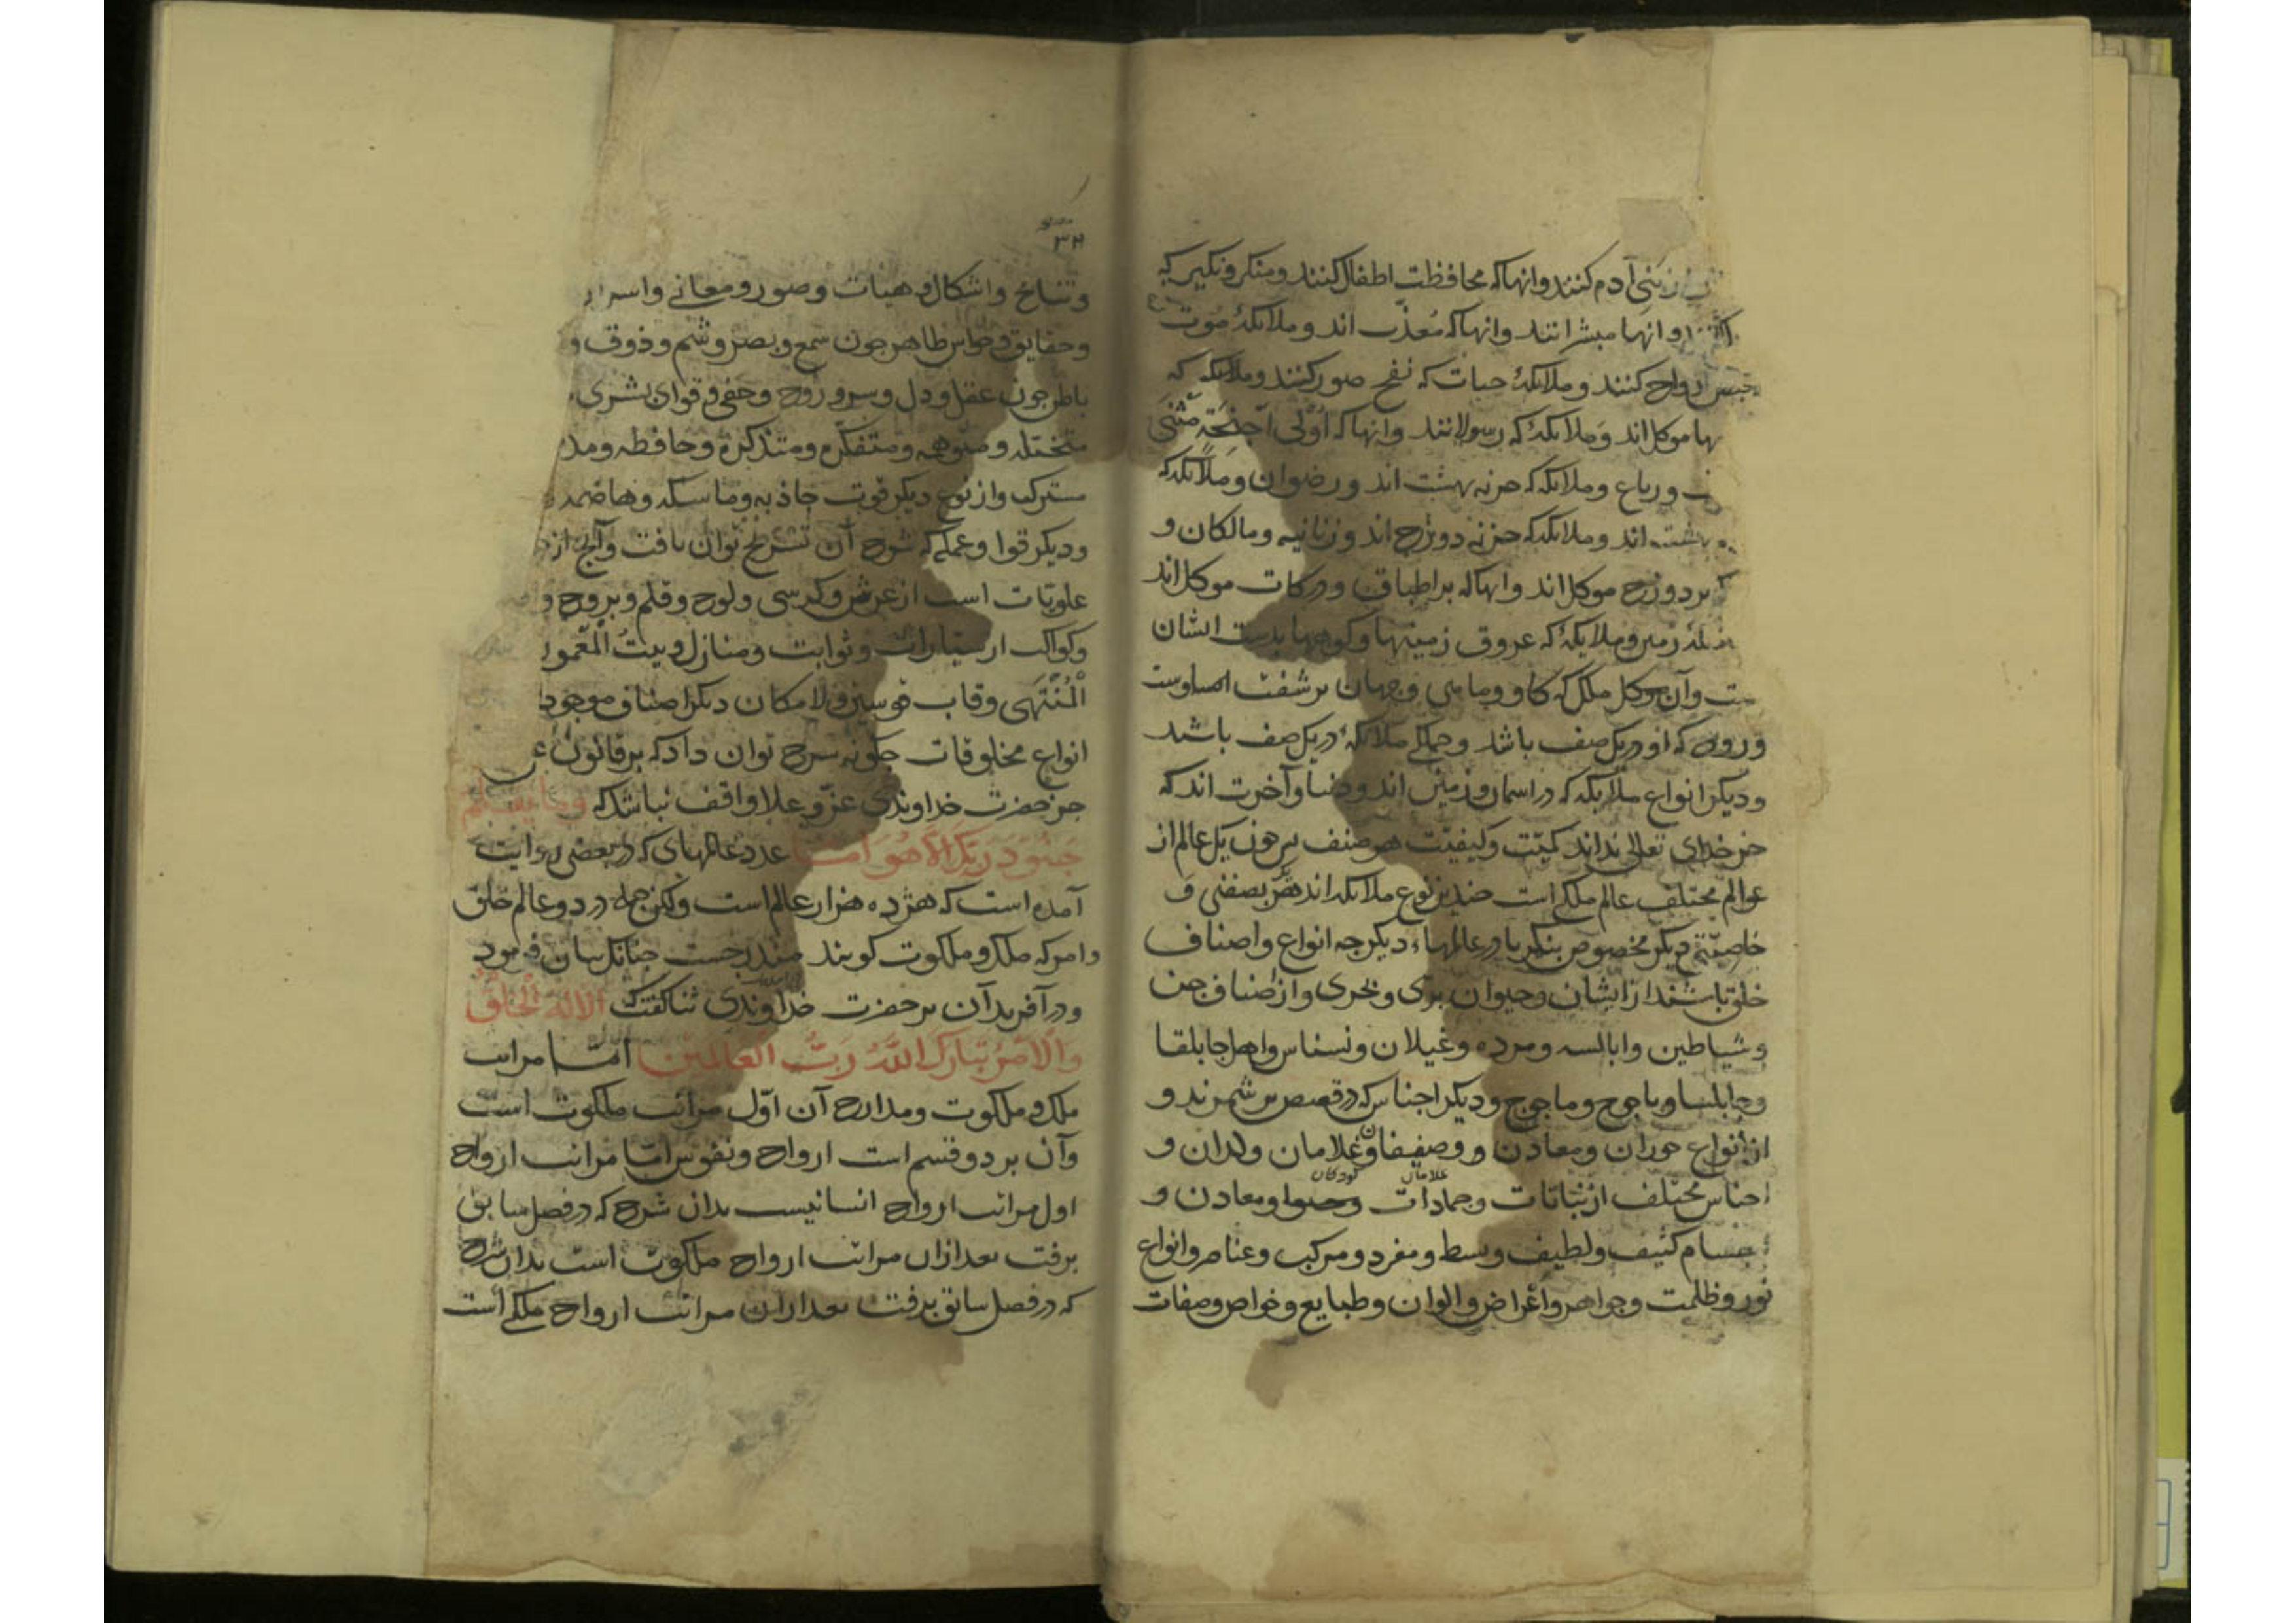 بنی آدم کنند وانها که محافظت اطفال کنند ومنکر ونکیر که
وانها مبشرانند وانها که معذب اند وملائکۀ موت
ارواح کنند وملائکۀ حیات که نفح صور کنند وملائکه که
موکل اند وملائکۀ که رسولانند وانها که اُولی اَجنِحَةٍ مَثنَی
ورباع وملائکه که خزنه بهشت اند ورضوان وملائکه که
اند وملائکه که خزنه دوزخ اند وزبانیه ومالکان و
بر دوزخ موکل اند وانها که بر اطباق ودرکات موکل اند
زمین وملائکۀ که عروق زمینها وکوهها بدست ایشان
وآن موکل ملکی که کاو وماهی وجهان بر
وروح که او در یک صف باشد وجملۀ ملائکه در یک صف باشد
ودیکر انواع ملائکه که در اسمان وزمین اند ودنیا وآخرت اند که
جز خدای تعالی نداند کمیّت وکیفیّت هر صنف پس چون یک عالم از
عوالم مختلف عالم ملکی است چندین نوع ملائکه اند هر یک بصفتی و
خاصیّتی دیکر مخصوص بنکر تا در عالمهاء دیکر چه انواع واصناف
خلق باشند از انسان وحیوان برّی وبحری واز اصناف جن
وشیاطین وابالسه ومرده وغیلان ونسناس واهل جابلقا
وجابلسا ویاجوج وماجوج ودیکر اجناس که در قصص بر شمرند و
از انواع حوران ومعادن ووصیفان وغلامان ولدان و
غلامان کودکان
اجناس مختلف از نباتات وجمادات ومعادن و
اجسام کثیف ولطیف وبسط ومفرد ومرکب وعناصر وانواع
نور وظلمت وجواهر واعراض والوان وطبایع وخواص وصفات
۳۲
وتناسخ واشکال وهیات وصور ومعانی واسرار
وحقایق وحواس ظاهر چون سمع وبصر وشم وذوق و
باطن چون عقل ودل وسر وروح وخفی وقوای بشری
متخیله ومتوهمه ومتفکره ومتذکره وحافظه
مشترک واز نوع دیکر قوت جاذبه وماسکه وهاضمه
ودیکر قوا که شرح آن تشریح توان یافت وآنج از
علویّات است از عرش وکرسی ولوح وقلم وبروج و
وکواکب از سیارات وثوابت ومنازل وبیتُ المعمور
المُنتَهَی وقاب قوسین ولامکان دیکر اصناف موجود
انواع مخلوقات چکونه شرح توان داد که بر قانون
جز حضرت خداوندی عزّ وعلا واقف نباشد که وما یعلم
جنود ربک الا هو امّا عدد عالمهای که در بعضی روایت
آمده است که هژده هزار عالم است ولکن جمله در دو عالم خلق
وامر که ملک وملکوت کویند مندرجست چنانک بیان فرمود
ودر آفریدن آن بر حضرت خداوندی ثنا کفت که الا له الخلق
والامر تبارک الله رب العالمین امّا مراتب
ملک وملکوت ومدارج آن اوّل مراتب ملکوت است
وآن بر دو قسم است ارواح ونفوس امّا مراتب ارواح
اول مراتب ارواح انسانیست بدان شرح که در فصل سابق
برفت بعد ازان مراتب ارواح ملکوت است بدان شرح
که در فصل سابق برفت بعد ازان مراتب ارواح ملکی است